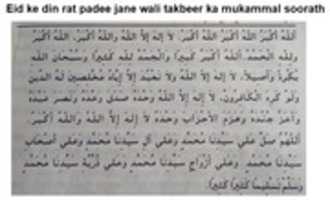 Eid ke din rat padee jane wali takbeer ka mukammal soorath
اَللهُ أَكْبَرُ اَللهُ أَكْبَرُ اَللهُ أَكْبَرُ، لاَ إِلهَ إِلاَّ اللهُ وَاللهُ أَكْبَرُ، اَللهُ أَكْبَرُ
وَلِلّهِ الْحَمْدُ اَللهُ أَكْبَرُ كَبِيرًا وَالْحَمْدُ لِلّهِ كَثِيرًا وَسُبْحَانَ اللهِ
بُكْرَةً وَأَصِيلاً، لاَ إِلهَ إِلاَّ اللهُ وَلاَ نَعْبُدُ إِلاَّ إِيَّاهُ مُخْلِصِينَ لَهُ الدِّينَ
وَلَوْ كَرِهَ الْكَافِرُونَ، لاَ إِلهَ إِلاَّ اللهُ وَحْدَهُ صَدَقَ وَعْدَهُ وَنَصَرَ عَبْدَهُ
وَأَعَزَّ جُنْدَهُ وَهَزَمَ الْأَحْزَابَ وَحْدَهُ لاَ إِلهَ إِلاَّ اللهُ وَاللهُ أَكْبَرُ
اَللّهُمَّ صَلِّ عَلَى سَيِّدِنَا مُحَمَّدٍ وَعَلَى آلِ سَيِّدِنَا مُحَمَّدٍ وَعَلَى أَصْحَابِ
سَيِّدِنَا مُحَمَّدٍ وَعَلَى أَزْوَاجِ سَيِّدِنَا مُحَمَّدٍ وَعَلَى ذُرِّيَّةِ سَيِّدِنَا مُحَمَّدٍ
وَسَلِّمْ تَسْلِيمًا كَثِيرًا كَثِيرًا.